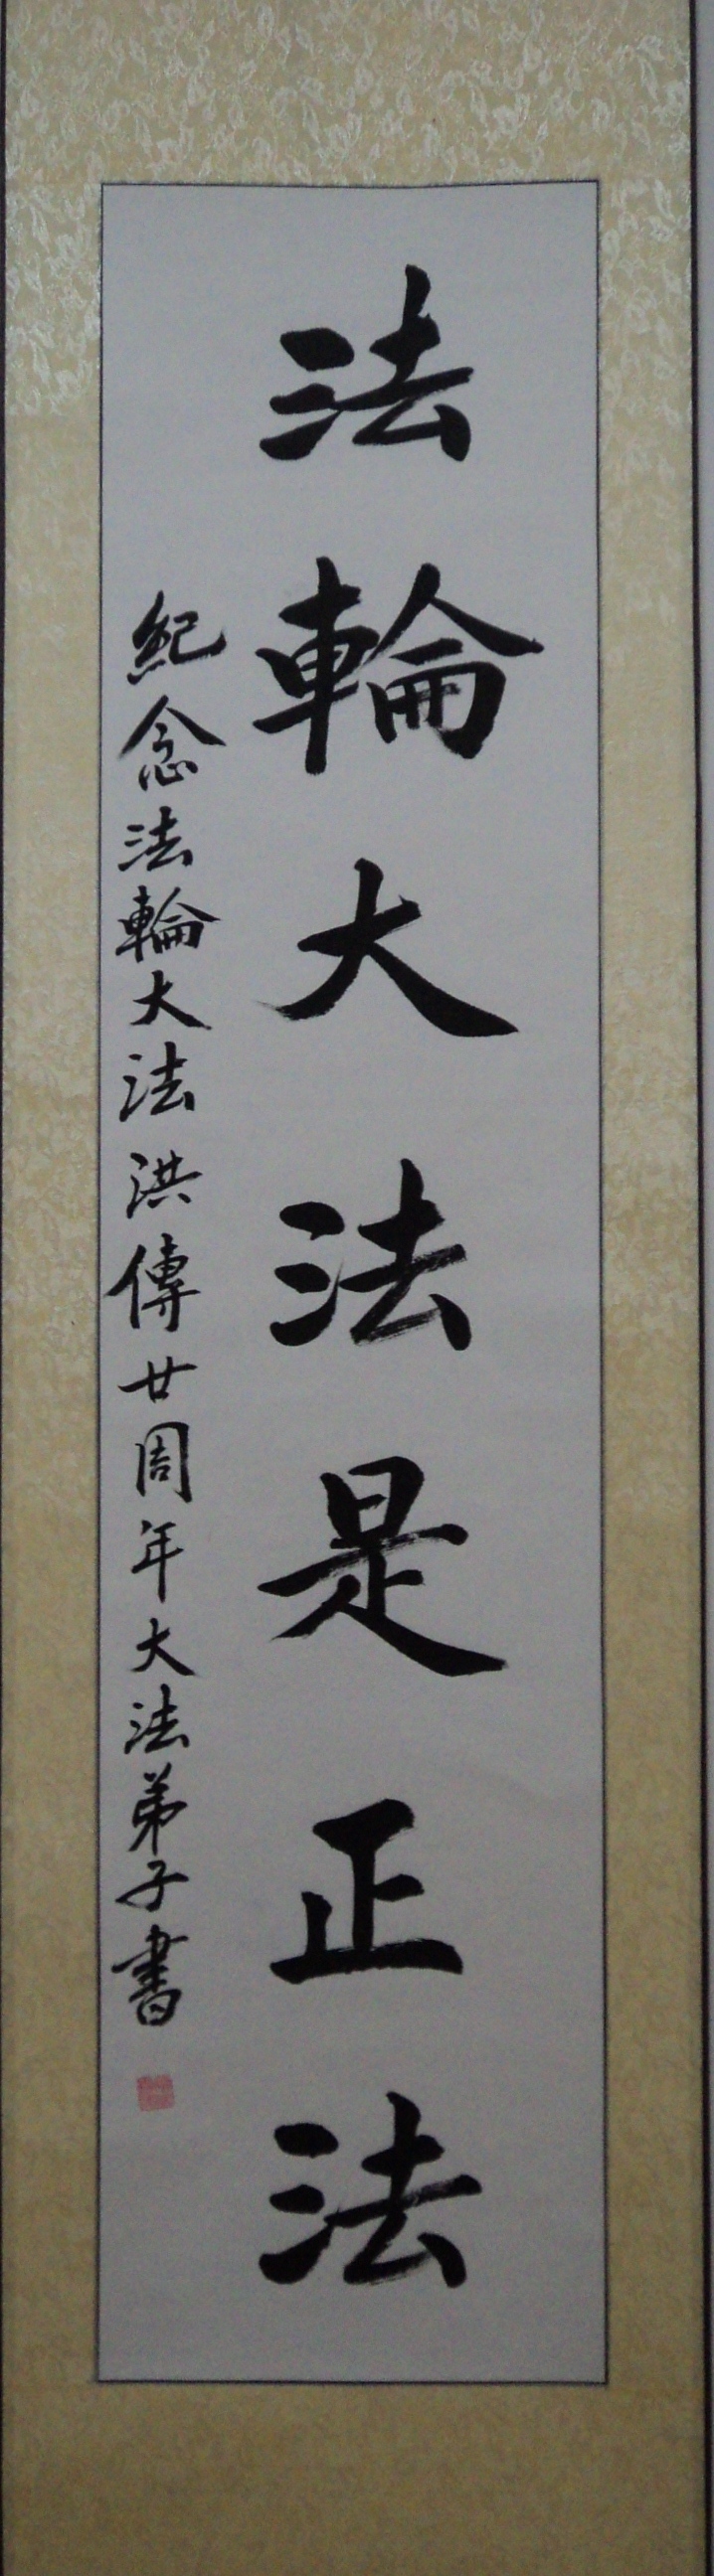 法輪大法是正法
紀念法輪大法洪傳廿周年大法弟子書